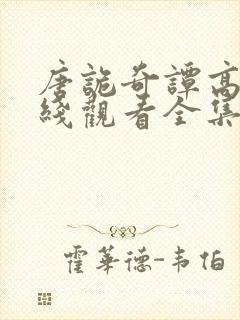 唐詭奇譚高
綫觀看全集
霍華德-韦伯